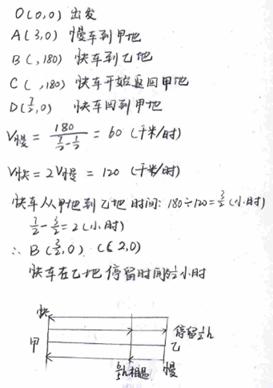 O(0,0) 出发
A(3,0) 慢车到甲地
B( ,180) 快车到乙地
C( ,180) 快车开始返回甲地
D(7/2,0) 快车回到甲地
V慢 = 180/(7/2-1/2) = 60 (千米/时)
V快 = 2V慢 = 120 (千米/时)
快车从甲地到乙地时间: 180÷120=3/2(小时)
7/2-3/2=2(小时)
∴ B(3/2,0) C(2,0)
快车在乙地停留时间1/2小时
快
停留1/2h
甲
乙
相遇
慢